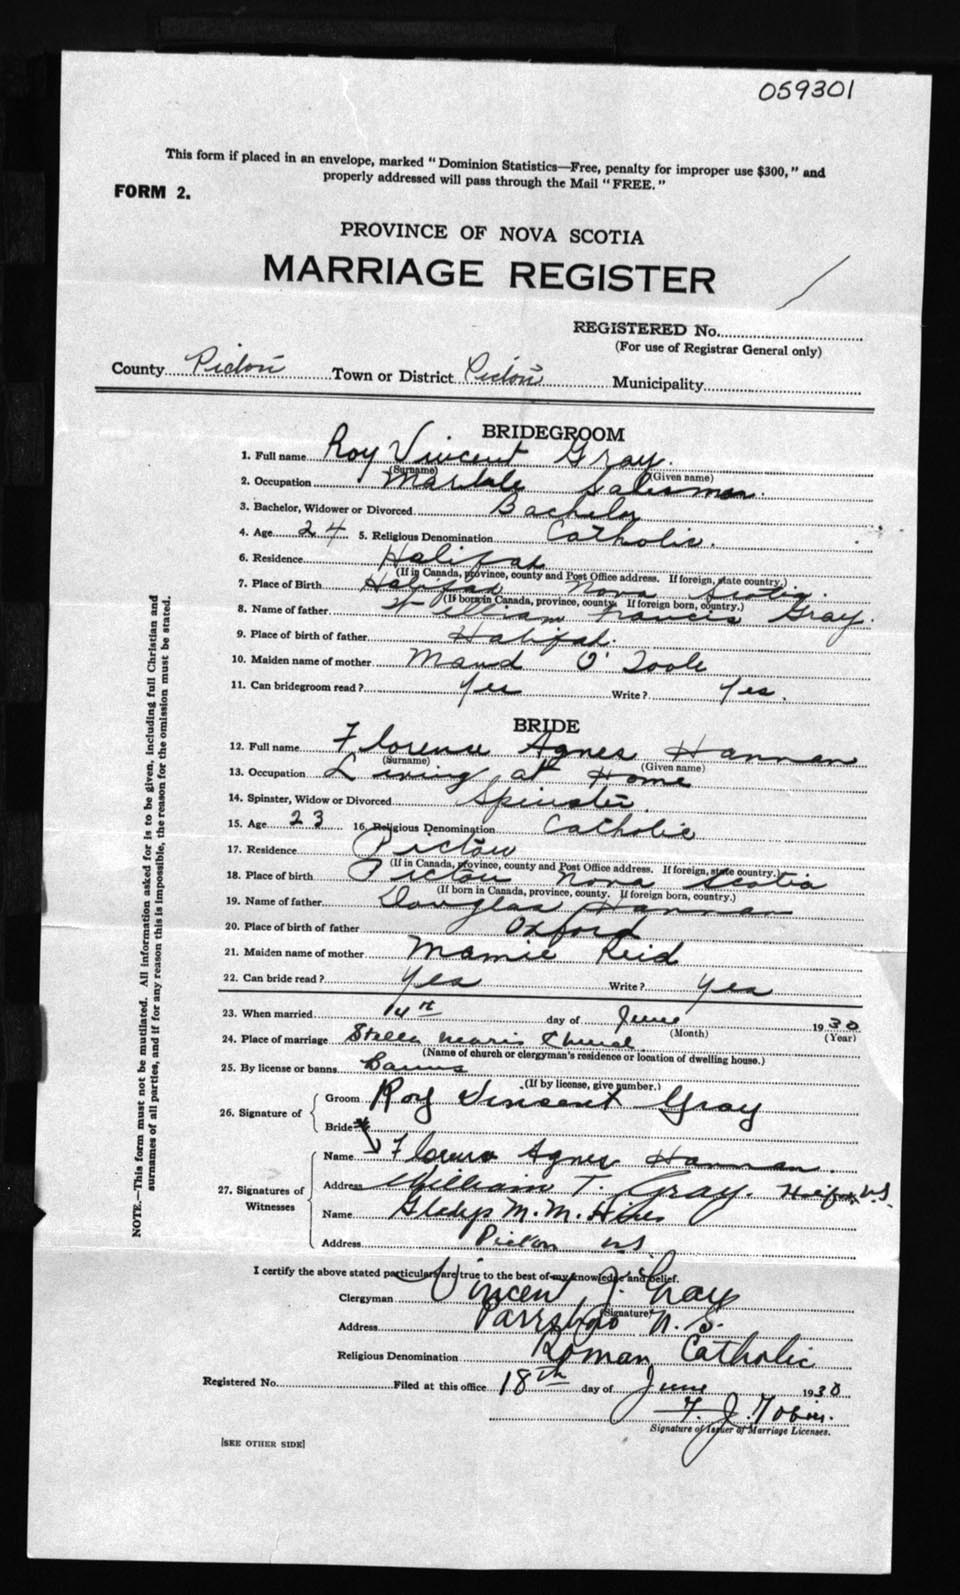 059301
This form if placed in an envelope, marked "Dominion Statistics—Free, penalty for improper use $300," and
properly addressed will pass through the Mail "FREE."
FORM 2.
PROVINCE OF NOVA SCOTIA
MARRIAGE REGISTER
REGISTERED No.
(For use of Registrar General only)
County Pictou Town or District Pictou Municipality
BRIDEGROOM
1. Full name Roy Vincent Gray.
(Surname) (Given name)
2. Occupation Salesman.
3. Bachelor, Widower or Divorced Bachelor
4. Age 24 5. Religious Denomination Catholic.
6. Residence Halifax
(If in Canada, province, county and Post Office address. If foreign, state country.)
7. Place of Birth Halifax Nova Scotia.
(If born in Canada, province, county. If foreign born, country.)
8. Name of father William Francis Gray.
9. Place of birth of father Halifax.
10. Maiden name of mother Maud O'Toole
11. Can bridegroom read? Yes Write? Yes.
BRIDE
12. Full name Florence Agnes Hannan
(Surname) (Given name)
13. Occupation Living at Home
14. Spinster, Widow or Divorced Spinster.
15. Age 23 16. Religious Denomination Catholic
17. Residence Pictou
(If in Canada, province, county and Post Office address. If foreign, state country.)
18. Place of birth Pictou Nova Scotia
(If born in Canada, province, county. If foreign born, country.)
19. Name of father Douglas Hannan
20. Place of birth of father Oxford
21. Maiden name of mother Mamie Reid
22. Can bride read? Yes Write? Yes
23. When married 14th day of June 1930
(Month) (Year)
24. Place of marriage Stella Maris Church
(Name of church or clergyman's residence or location of dwelling house.)
25. By license or banns Banns
(If by license, give number.)
26. Signature of Groom Roy Vincent Gray
Bride
27. Signatures of Witnesses Name Florence Agnes Hannan.
Address William T. Gray. Halifax N.S.
Name Gladys M. M. Hines
Address Pictou N.S.
I certify the above stated particulars are true to the best of my knowledge and belief.
Clergyman Vincent J. Gray
(Signature)
Address Parrsboro N.S.
Religious Denomination Roman Catholic
Registered No. Filed at this office 18th day of June 1930
F. J. Tobin.
Signature of Issuer of Marriage Licenses.
[SEE OTHER SIDE]
NOTE.—This form must not be mutilated. All information asked for is to be given, including full Christian and
surnames of all parties, and if for any reason this is impossible, the reason for the omission must be stated.